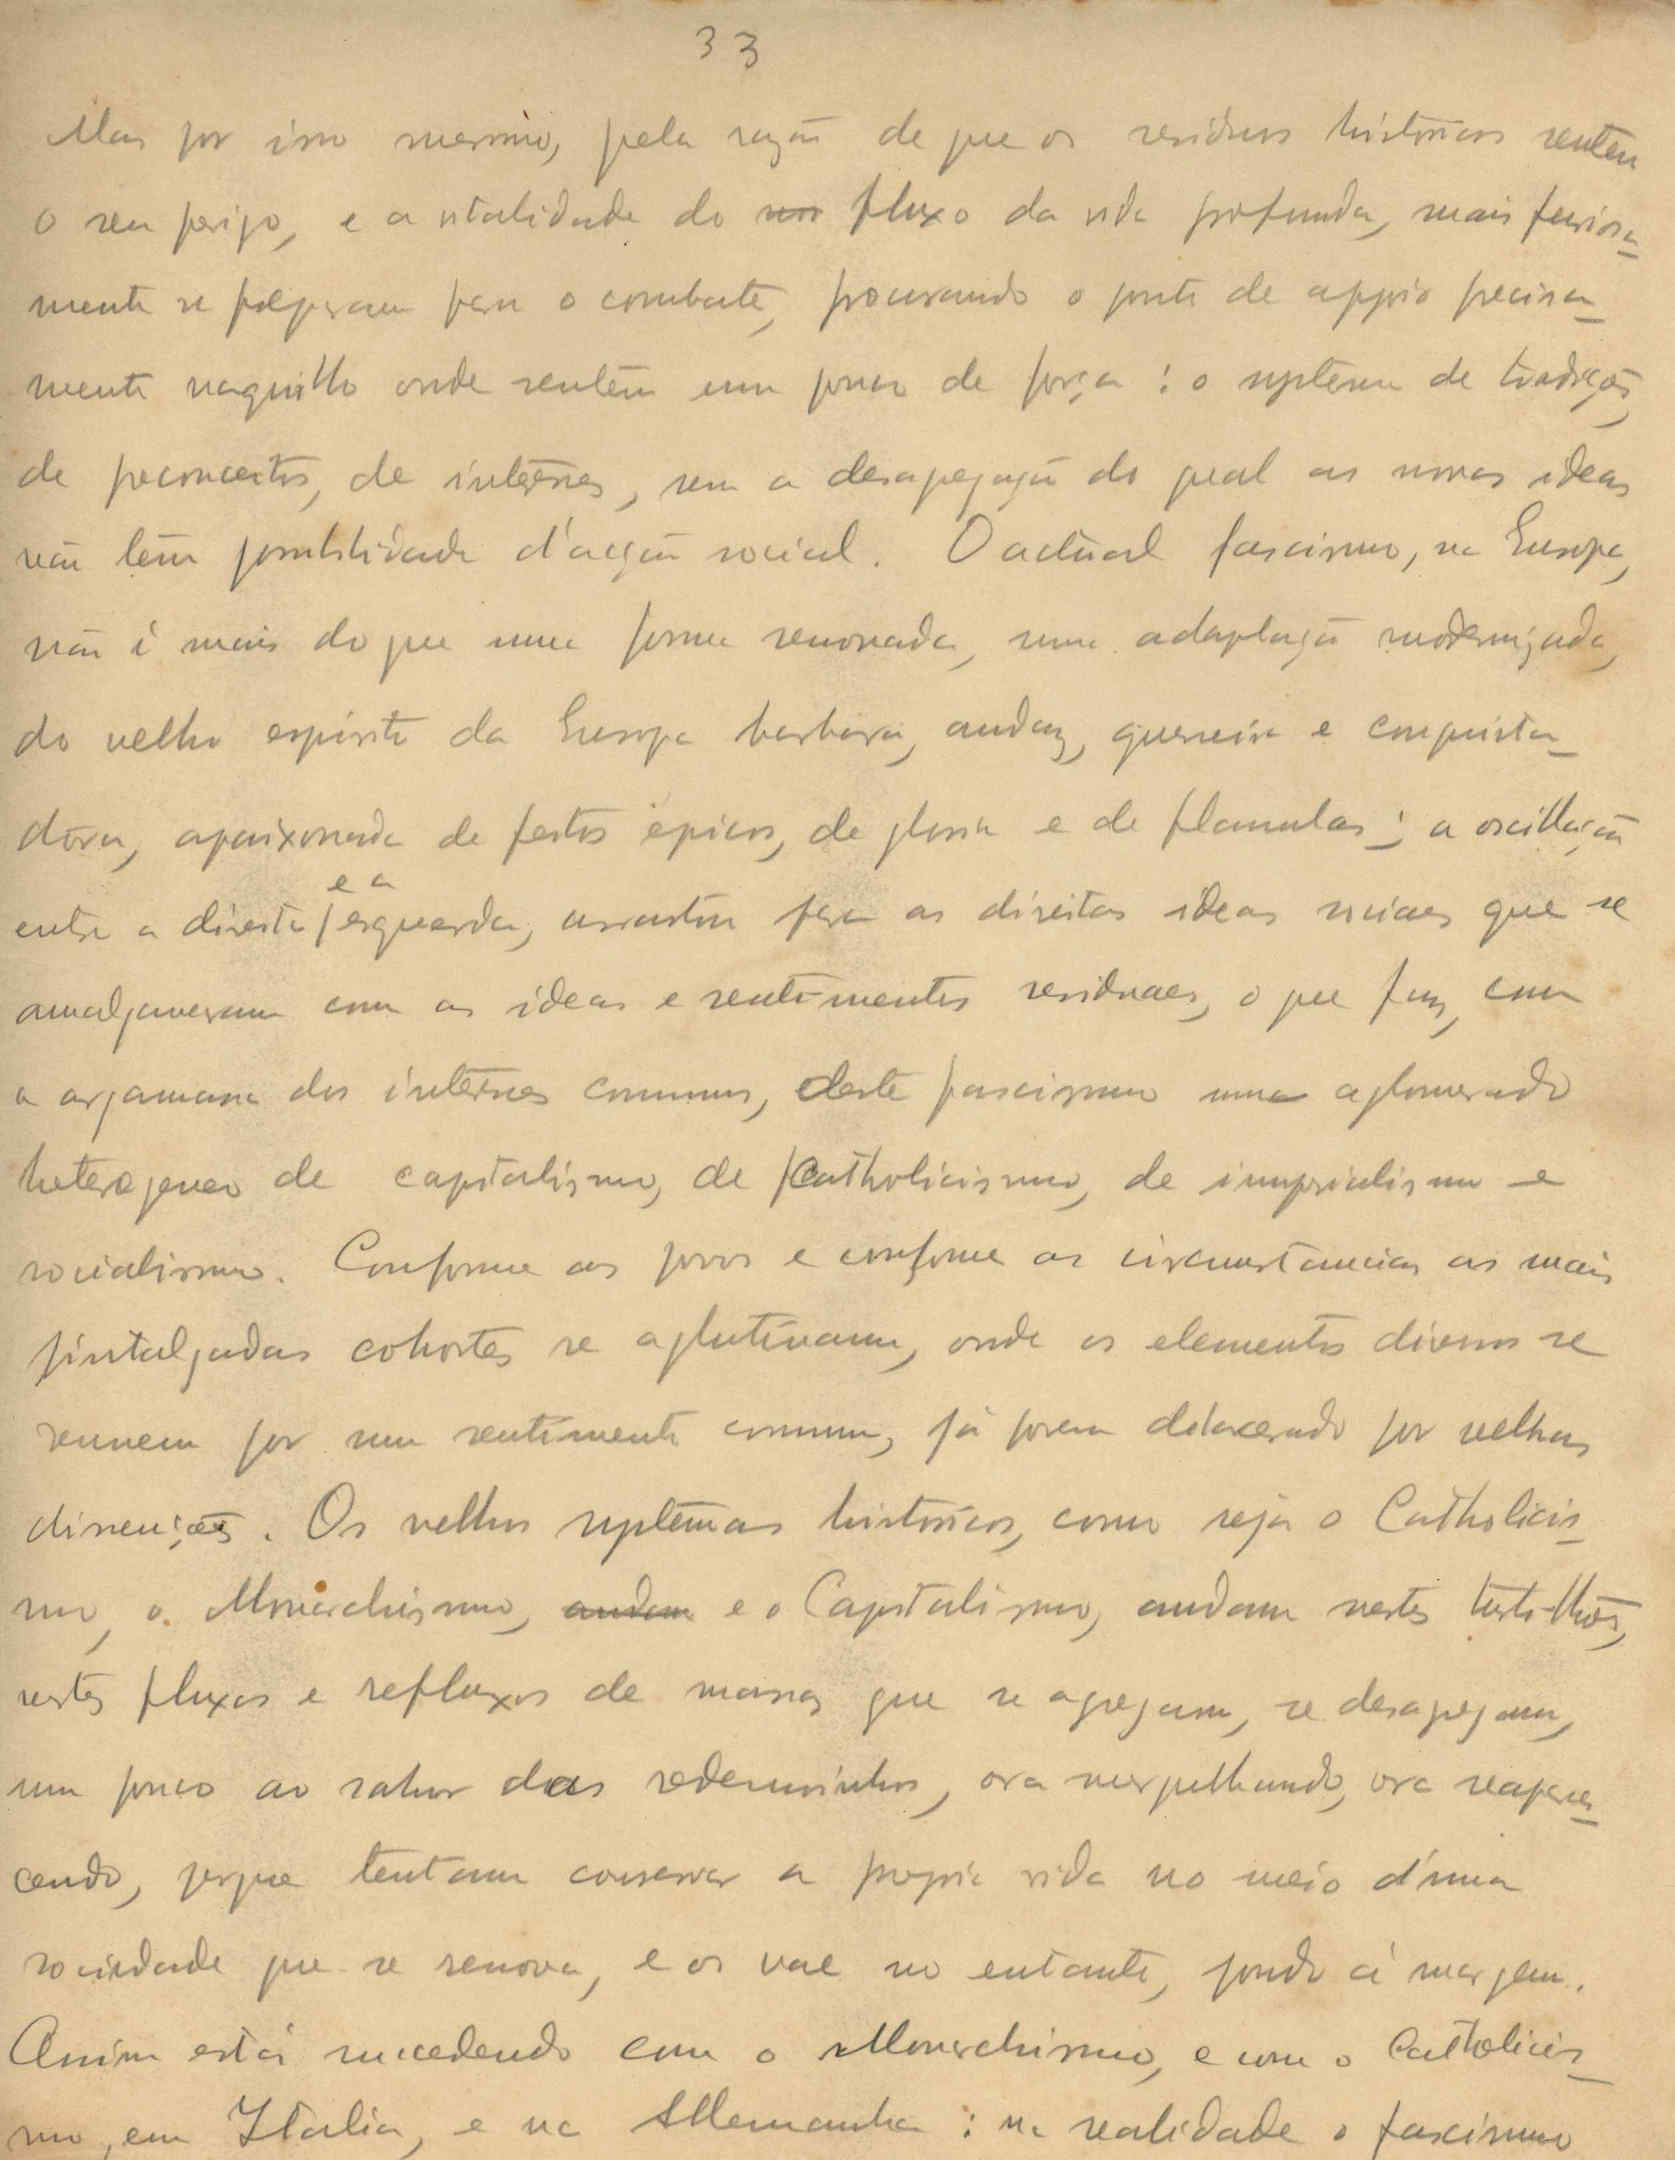 33
Mas por isso mesmo, pela razão de que os residuos históricos sentem
o seu perigo, e a vitalidade do fluxo da vida profunda, mais furiosa-
mente se preparam para o combate, procurando o ponto de appoio precisa-
mente naquillo onde sentem um pouco de força : o systema de tradições,
de preconceitos, de interesses, sem a desagregação do qual as novas ideas
não têm possibilidade d'acção social. O actual fascismo, na Europa,
não é mais do que uma forma renovada, uma adaptação modernizada,
do velho espirito da Europa barbara, audaz, guerreira e conquista-
dora, apaixonada de festos épicos, de gloria e de flamulas ; a oscillação
entre a direita e a esquerda, arrastou para as direitas ideas sociaes que se
amalgamaram com as ideas e sentimentos residuaes, o que faz, com
a argamassa dos interesses communs, deste fascismo um aglomerado
heterogeneo de capitalismo, de Catholicismo, de imperialismo e
socialismo. Conforme os povos e conforme as circumstancias as mais
pintalgadas cohortes se aglutinam, onde os elementos diversos se
reunem por um sentimento commum, já porem dilacerado por velhas
dissenções. Os velhos systemas históricos, como seja o Catholicis-
mo, o Monarchismo, e o Capitalismo, andam nestes turbilhões,
nestes fluxos e refluxos de massas que se agregam, se desagregam,
um pouco ao sabor dos redemoinhos, ora mergulhando, ora reapare-
cendo, porque tentam conservar a propria vida no meio d'uma
sociedade que se renova, e os vae no entanto, pondo á margem.
Assim está succedendo com o Monarchismo, e com o Catholicis-
mo, em Italia, e na Allemanha : na realidade o fascismo